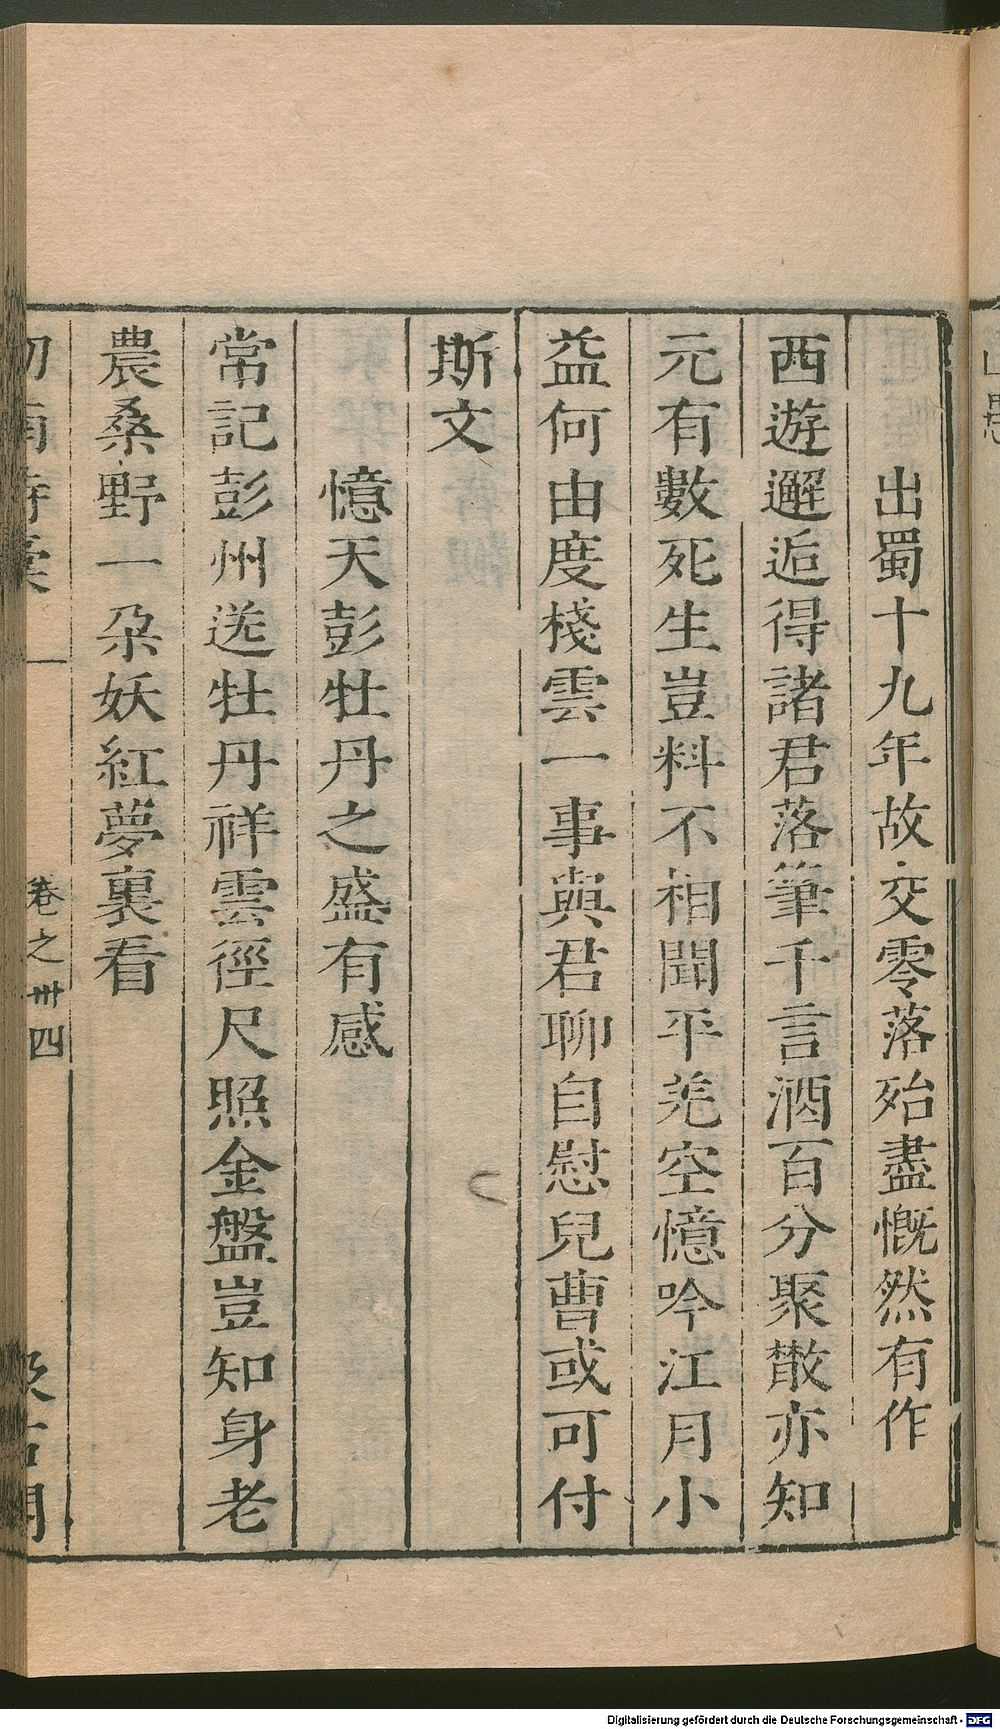 出蜀十九年故交零落殆盡慨然有作
西遊邂逅得諸君落筆千言酒百分聚散亦知
元有數死生豈料不相聞平羌空憶吟江月小
益何由度棧雲一事與君聊自慰兒曹或可付
斯文
憶天彭牡丹之盛有感
常記彭州送牡丹祥雲徑尺照金盤豈知身老
農桑野一朶妖紅夢裏看
卷之卅四
Digitalisierung gefördert durch die Deutsche Forschungsgemeinschaft - DFG